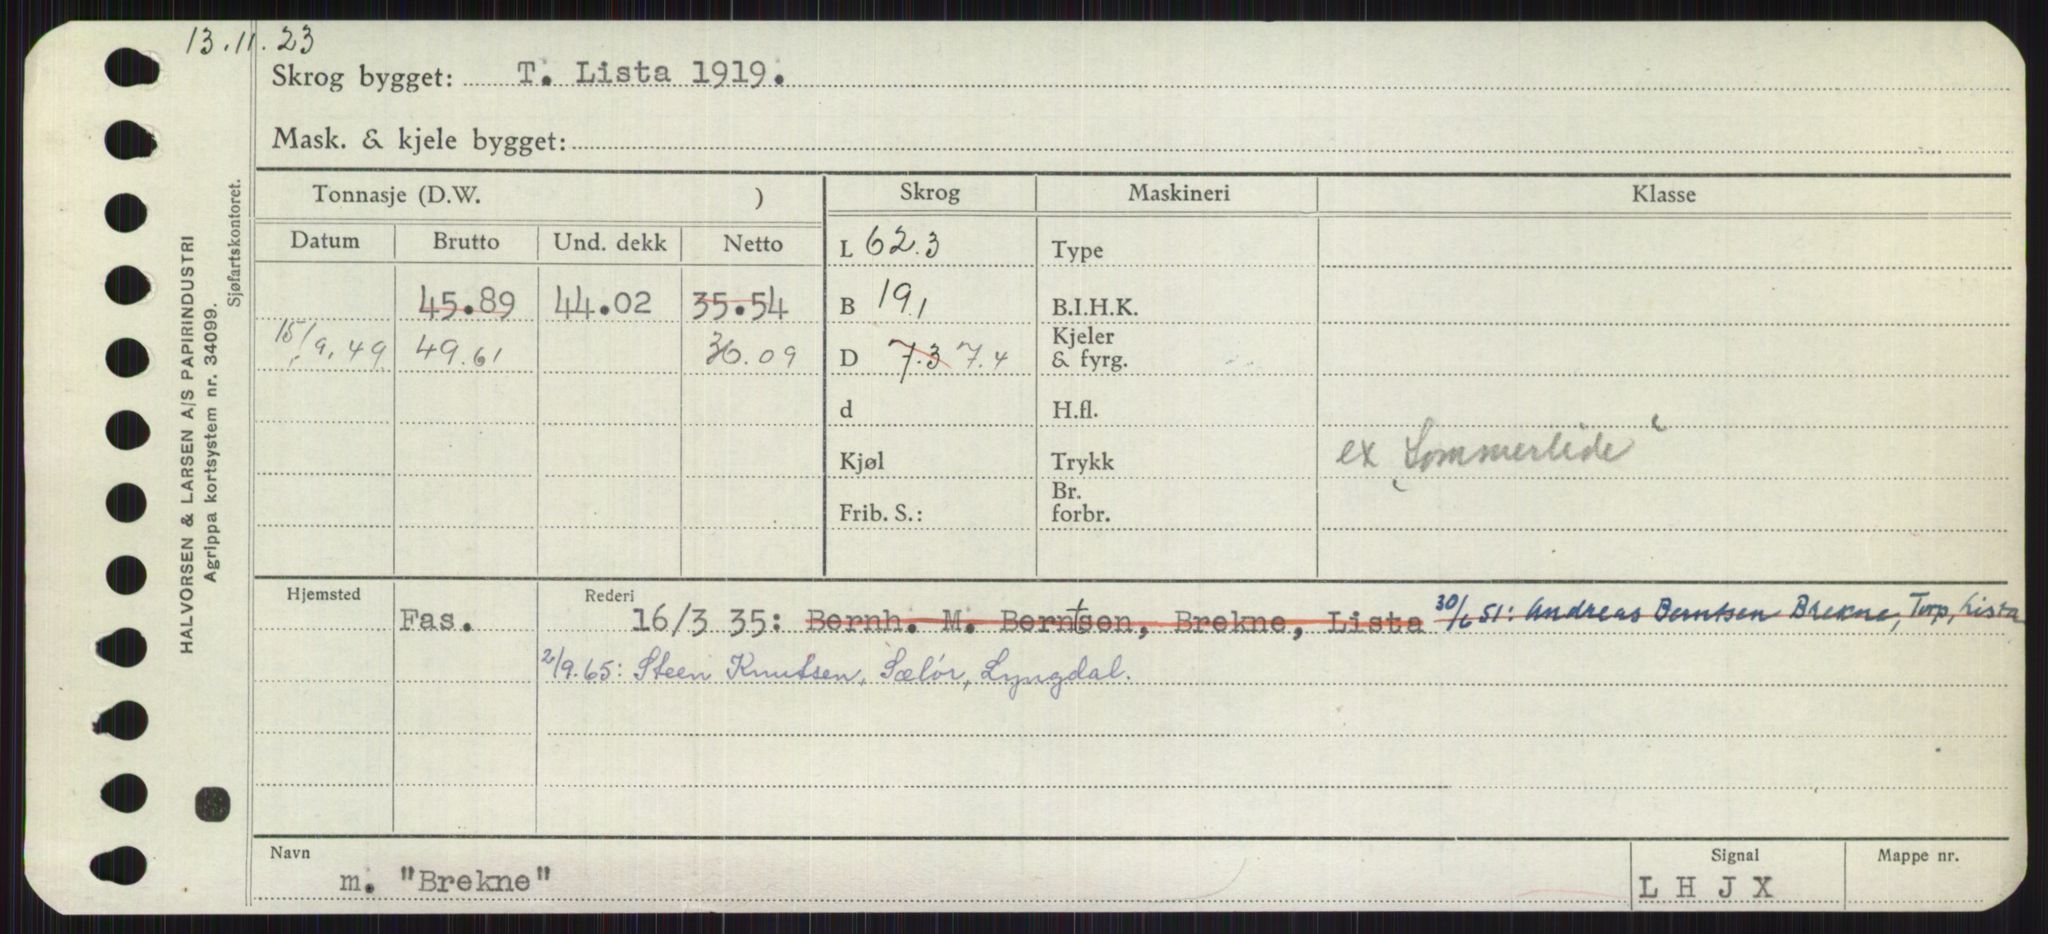 13.11.23
Skrog bygget: T. Lista 1919.
Mask. & kjele bygget:
HALVORSEN & LARSEN A/S PAPIRINDUSTRI
Agrippa kortsystem nr. 34099.
Sjøfartskontoret.
Tonnasje (D.W. ) Skrog Maskineri Klasse
Datum Brutto Und. dekk Netto
L 62.3 Type
45.89 44.02 35.54 B 19,1 B.I.H.K.
15/9.49 49.61 36.09 D 7.3 7.4 Kjeler & fyrg.
d H.fl.
Kjøl Trykk ex "Sommerlide"
Frib. S.: Br. forbr.
Hjemsted Rederi
Fas. 16/3 35: Bernh. M. Berntsen, Brekne, Lista 30/6 51: Andreas Berntsen Brekne, Torp, Lista
2/9.65: Steen Knutsen, Sælør, Lyngdal.
Navn Signal Mappe nr.
m. "Brekne" L H J X